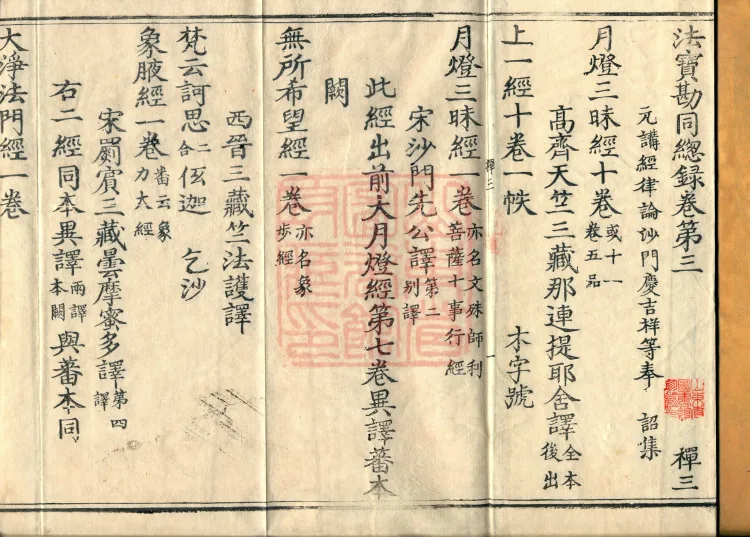 法寶勘同總録卷第三 禪三
元講經律論沙門慶吉祥等奉 詔集
月燈三昧經十卷 或十一卷五品
高齊天竺三藏那連提耶舍譯 全本後出
上一經十卷一帙 木字號
禪三 一
月燈三昧經一卷 亦名文殊師利菩薩十事行經
宋沙門先公譯 第二別譯
此經出前大月燈經第七卷異譯蕃本
闕
無所希望經一卷 亦名象步經
西晉三藏竺法護譯
梵云訶思 二合 伭迦 乞沙
象腋經一卷 蕃云象力大經
宋罽賓三藏曇摩蜜多譯 第四譯
右二經同本異譯 兩譯本闕 與蕃本同
大淨法門經一卷